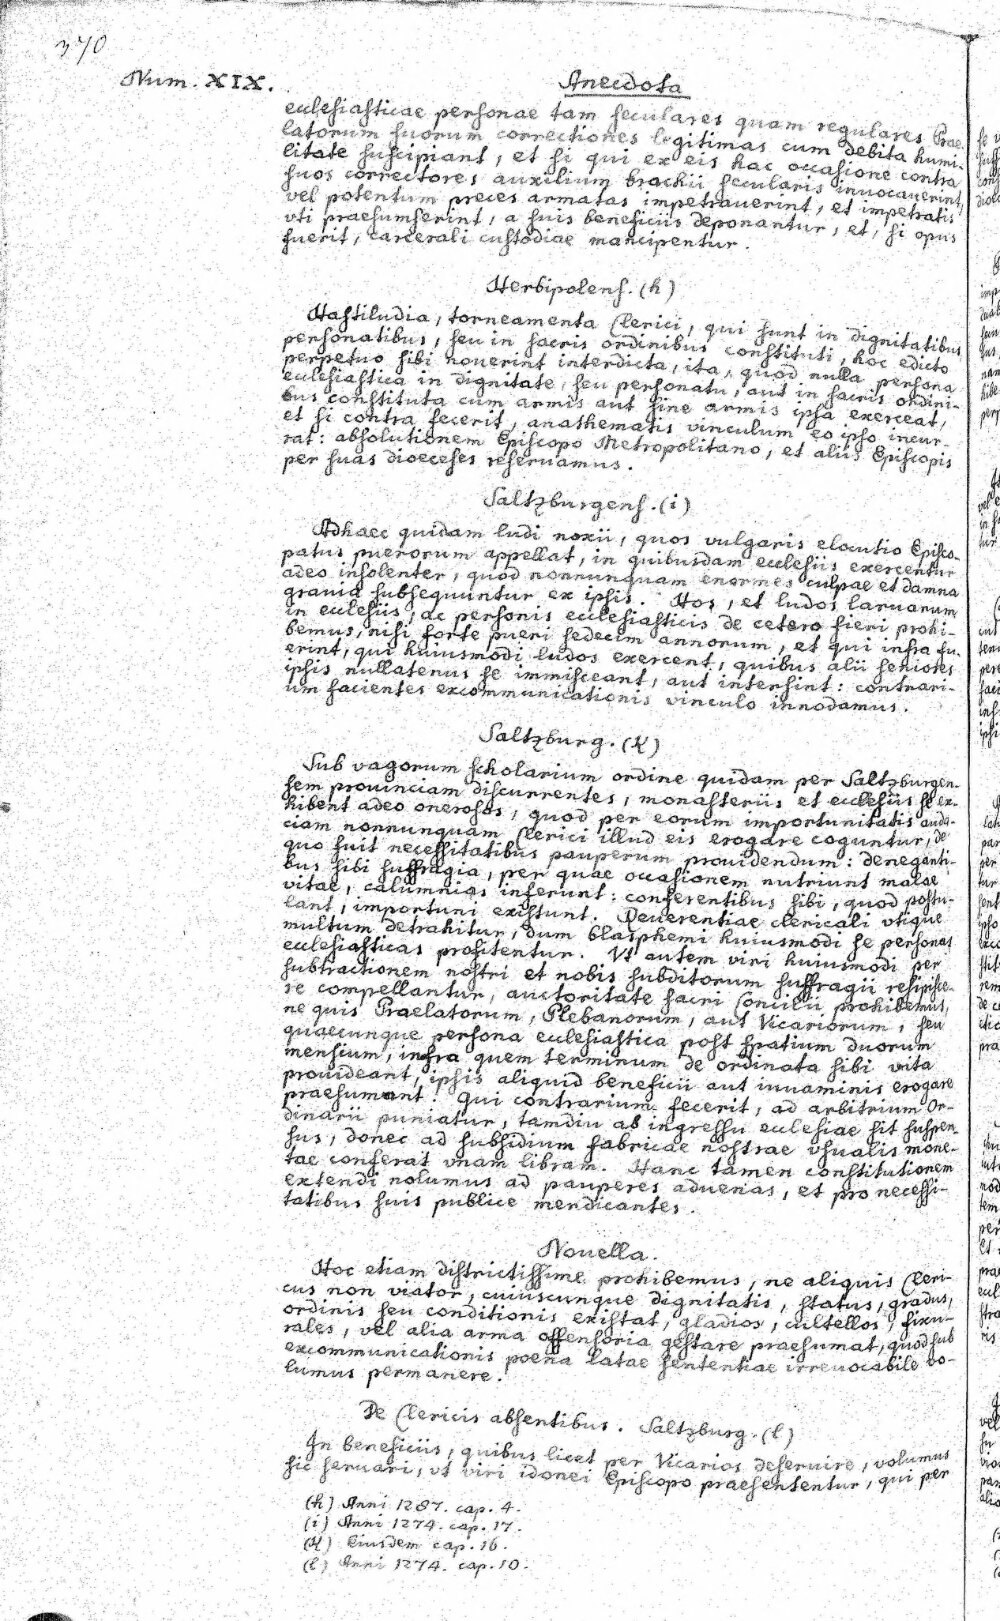 370
Num. XIX.
Anecdota
ecclesiasticae personae tam seculares quam regulares Prae-
latorum suorum correctiones legitimas cum debita humi-
litate suscipiant, et si qui ex eis hac occasione contra
suos correctores auxilium brachii secularis inuocauerint,
vel potentum preces armatas impetrauerint, et impetratis
vti praesumserint, a suis beneficiis deponantur, et, si opus
fuerit, carcerali custodiae mancipentur.
Herbipolens. (h)
Hastiludia, torneamenta Clerici, qui sunt in dignitatibus
personatibus, seu in sacris ordinibus constituti, hoc edicto
perpetuo sibi nouerint interdicta, ita, quod nulla persona
ecclesiastica in dignitate, seu personatu, aut in sacris ordini-
bus constituta cum armis aut sine armis ipsa exerceat,
et si contra fecerit, anathematis vinculum eo ipso incur-
rat: absolutionem Episcopo Metropolitano, et aliis Episcopis
per suas dioeceses reseruamus.
Saltzburgens. (i)
Adhaec quidam ludi noxii, quos vulgaris elocutio Episco-
patus puerorum appellat, in quibusdam ecclesiis exercentur
adeo insolenter, quod nonnunquam enormes culpae et damna
grauia subsequuntur ex ipsis. Hos, et ludos laruarum
in ecclesiis, ac personis ecclesiasticis de cetero fieri prohi-
bemus, nisi forte pueri sedecim annorum, et qui infra fu-
erint, qui huiusmodi ludos exercent, quibus alii seniores
ipsis nullatenus se immisceant, aut intersint: contrari-
um facientes excommunicationis vinculo innodamus.
Saltzburg. (k)
Sub vagorum scholarium ordine quidam per Saltzburgen-
sem prouinciam discurrentes, monasteriis et ecclesiis se ex-
hibent adeo onerosos, quod per eorum importunitatis auda-
ciam nonnunquam Clerici illud eis erogare coguntur, de
quo fuit necessitatibus pauperum prouidendum: deneganti-
bus sibi suffragia, per quae occasionem nutriunt malae
vitae, calumnias inferunt: conferentibus sibi, quod postu-
lant, importuni existunt. Reuerentiae clericali vtique
multum detrahitur, dum blasphemi huiusmodi se personas
ecclesiasticas profitentur. Vt autem viri huiusmodi per
subtractionem nostri et nobis subditorum suffragii resipisce-
re compellantur, auctoritate sacri Concilii prohibemus,
ne quis Praelatorum, Plebanorum, aut Vicariorum, seu
quaecunque persona ecclesiastica post spatium duorum
mensium, infra quem terminum de ordinata sibi vita
prouideant, ipsis aliquid beneficii aut iuuaminis erogare
praesumant. Qui contrarium fecerit, ad arbitrium Or-
dinarii puniatur, tamdiu ab ingressu ecclesiae sit suspen-
sus, donec ad subsidium fabricae nostrae vsualis mone-
tae conferat vnam libram. Hanc tamen constitutionem
extendi nolumus ad pauperes aduenas, et pro necessi-
tatibus suis publice mendicantes.
Nouella.
Hoc etiam districtissime prohibemus, ne aliquis Cleri-
cus non viator, cuiuscunque dignitatis, status, gradus,
ordinis seu conditionis existat, gladios, cultellos, sixu-
rales, vel alia arma offensoria gestare praesumat, quod sub
excommunicationis poena latae sententiae irreuocabile vo-
lumus permanere.
De Clericis absentibus. Saltzburg. (l)
In beneficiis, quibus licet per Vicarios deseruire, volumus
sic seruari, vt viri idonei Episcopo praesententur, qui per
(h) Anni 1287. cap. 4.
(i) Anni 1274. cap. 17.
(k) Eiusdem cap. 16.
(l) Anni 1274. cap. 10.